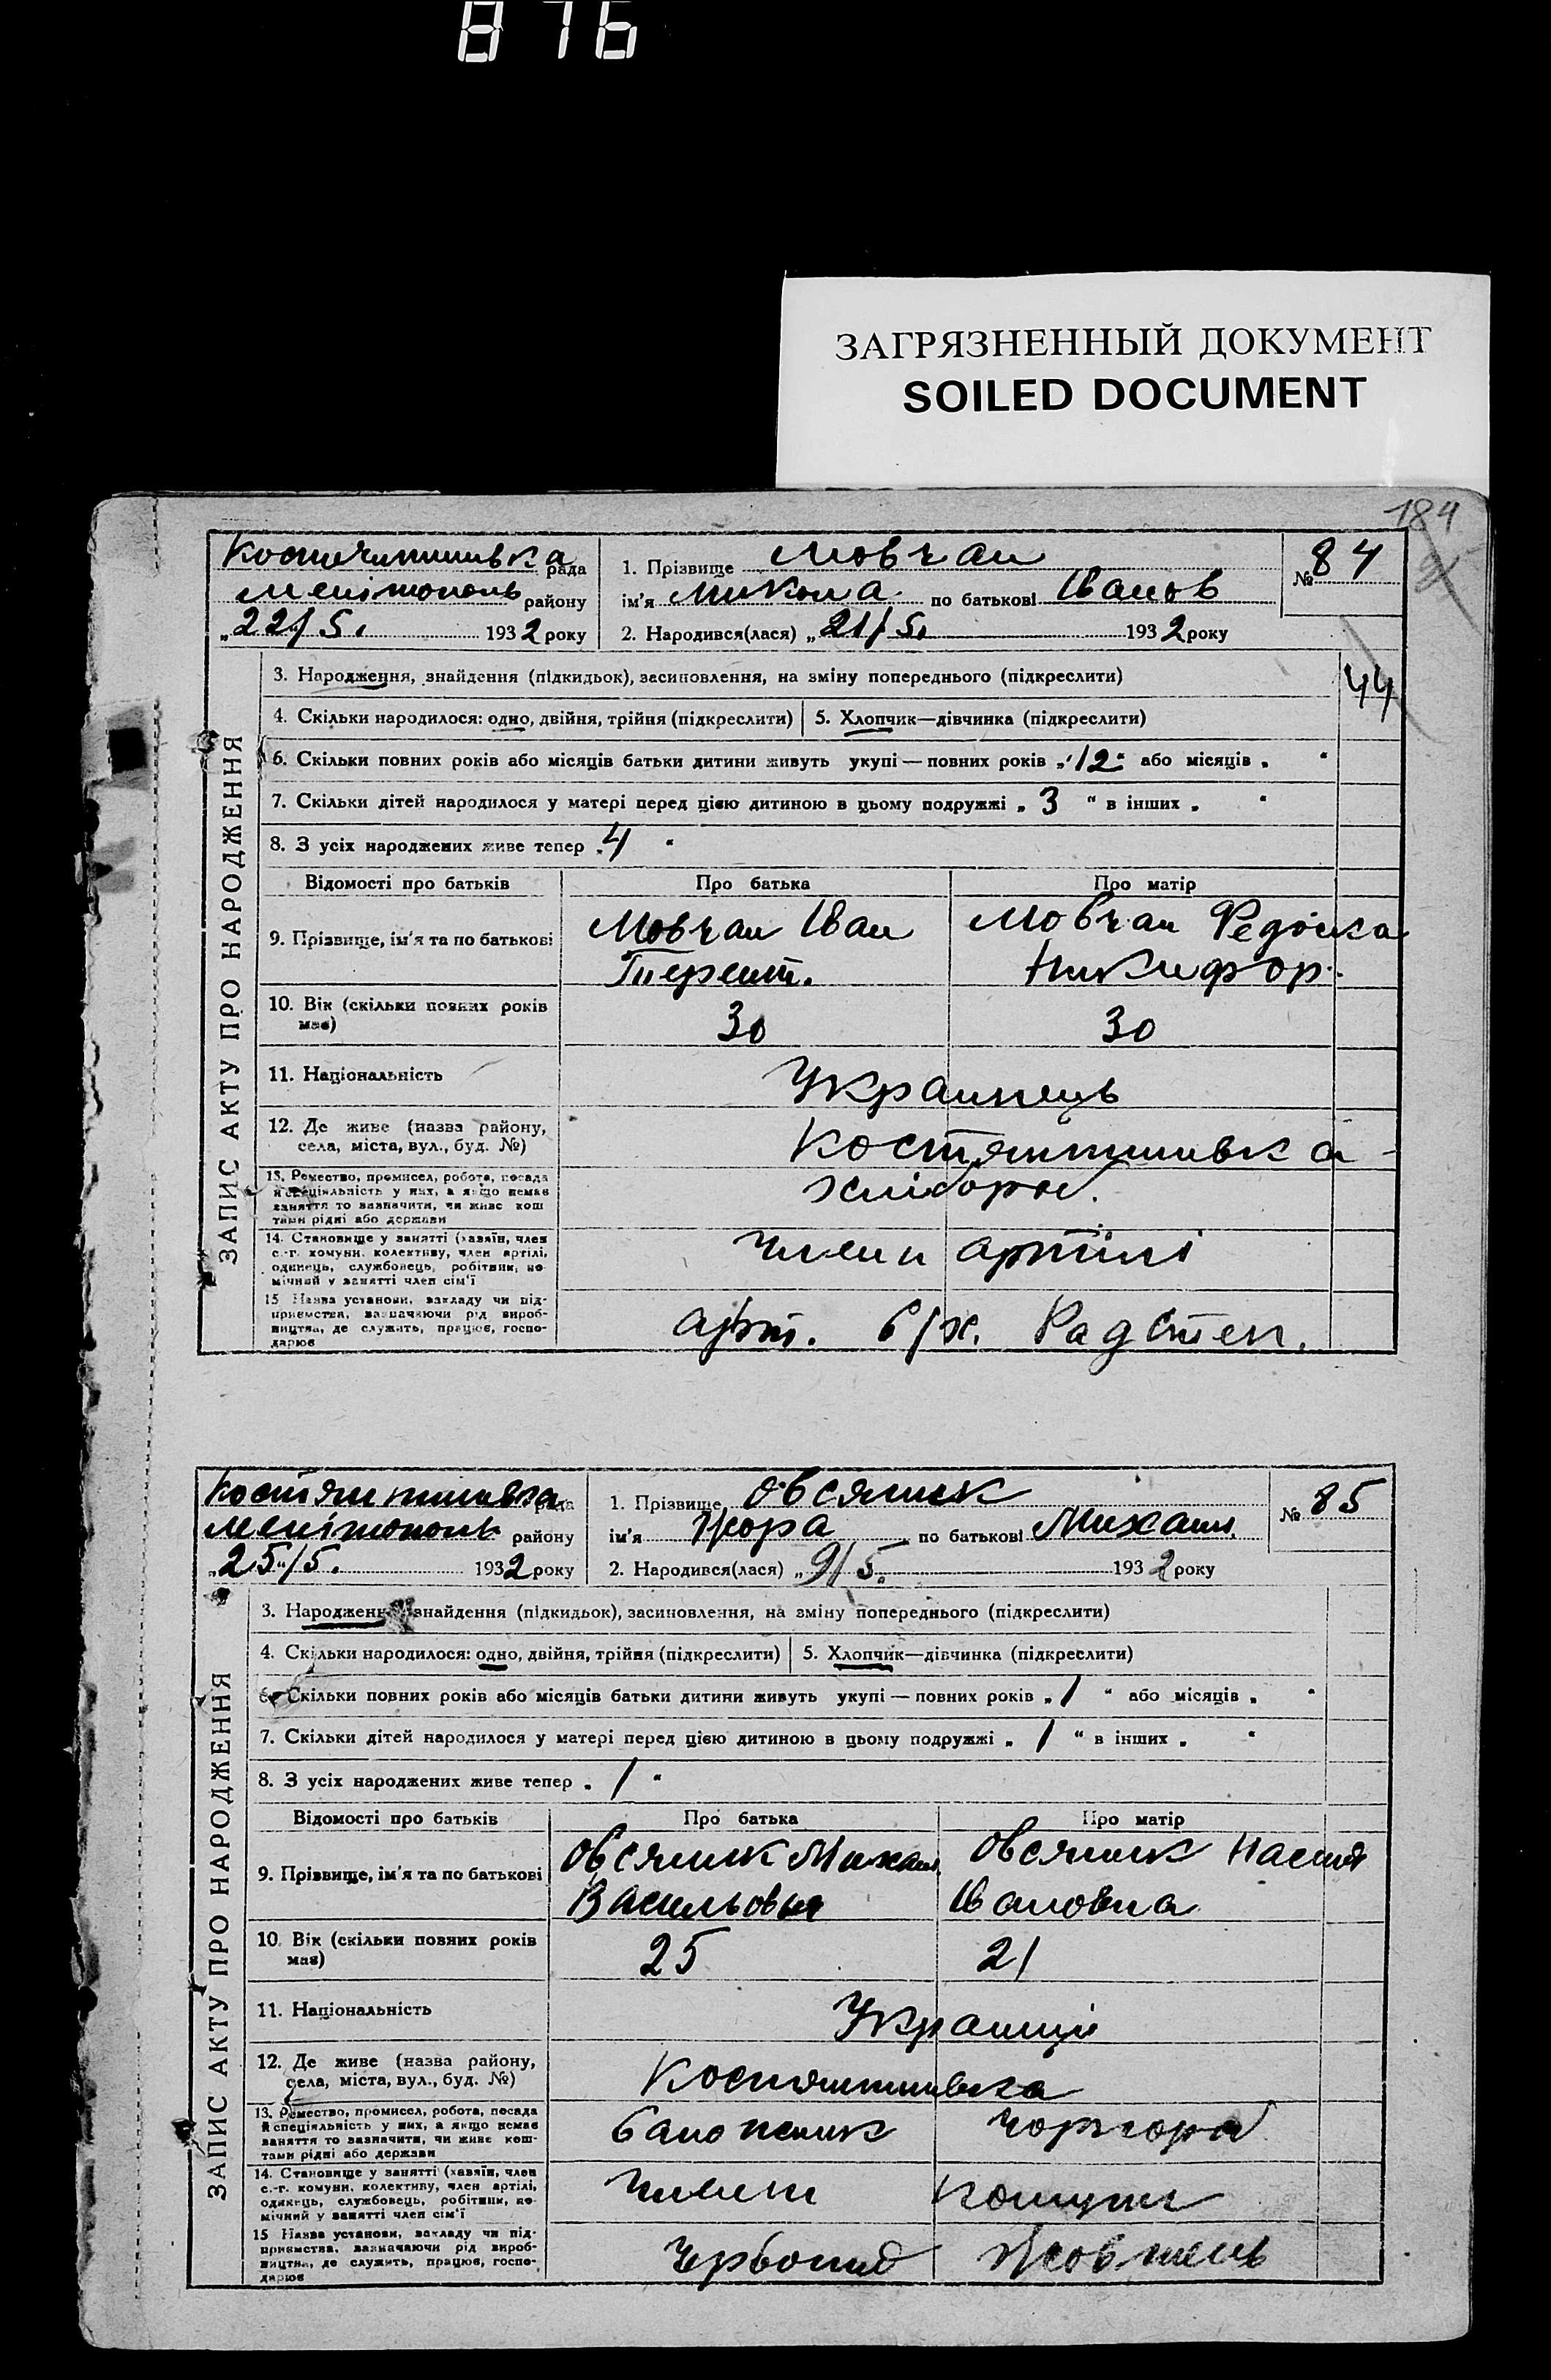 876
ЗАГРЯЗНЕННЫЙ ДОКУМЕНТ
SOILED DOCUMENT
184
ЗАПИС АКТУ ПРО НАРОДЖЕННЯ
рада
Мелітополь району
"22/5. 1932 року
1. Прізвище Мовчан
ім'я Микола по батькові Іванов
2. Народився(лася) "21/5. 1932 року
№ 84
3. Народження, знайдення (підкидьок), засиновлення, на зміну попереднього (підкреслити)
44
4. Скільки народилося: одно, двійня, трійня (підкреслити) 5. Хлопчик—дівчинка (підкреслити)
6. Скільки повних років або місяців батьки дитини живуть укупі — повних років "12" або місяців "
7. Скільки дітей народилося у матері перед цією дитиною в цьому подружжі "3" в інших "
8. З усіх народжених живе тепер "4"
Відомості про батьків Про батька Про матір
9. Прізвище, ім'я та по батькові Мовчан Іван Мовчан
Терент. Никифор.
10. Вік (скільки повних років має) 30 30
11. Національність Украинець
12. Де живе (назва району,
села, міста, вул., буд. №)
13. Ремество, промисел, робота, посада
й спеціяльність у них, а якщо немає
заняття то зазначити, чи живе кош
тами рідні або держави
хлібороб.
14. Становище у занятті (хазяїн, член
с.-г. комуни, колективу, член артілі,
одинець, службовець, робітник, по-
мічний у занятті член сім'ї
члени артілі
15 Назва установи, закладу чи під-
приємства, зазначаючи рід вироб-
ництва, де служить, працює, госпо-
дарює
арт. Рад степ.
ЗАПИС АКТУ ПРО НАРОДЖЕННЯ
рада
Мелітополь району
"25"/5. 1932 року
1. Прізвище Овсяник
ім'я Жора по батькові Михаил.
2. Народився(лася) "9/5. 1932 року
№ 85
3. Народження, знайдення (підкидьок), засиновлення, на зміну попереднього (підкреслити)
4. Скільки народилося: одно, двійня, трійня (підкреслити) 5. Хлопчик—дівчинка (підкреслити)
6. Скільки повних років або місяців батьки дитини живуть укупі — повних років "1" або місяців "
7. Скільки дітей народилося у матері перед цією дитиною в цьому подружжі "1" в інших "
8. З усіх народжених живе тепер "1"
Відомості про батьків Про батька Про матір
9. Прізвище, ім'я та по батькові Овсяник Михаил Овсяник Настя
Васильович Івановна
10. Вік (скільки повних років має) 25 21
11. Національність Украинці
12. Де живе (назва району,
села, міста, вул., буд. №)
13. Ремество, промисел, робота, посада
й спеціяльність у них, а якщо немає
заняття то зазначити, чи живе кош-
тами рідні або держави
14. Становище у занятті (хазяїн, член
с.-г. комуни, колективу, член артілі,
одинець, службовець, робітник, по-
мічний у занятті член сім'ї
члени комуни
15 Назва установи, закладу чи під-
приємства, зазначаючи рід вироб-
ництва, де служить, працює, госпо-
дарює
Жовтень